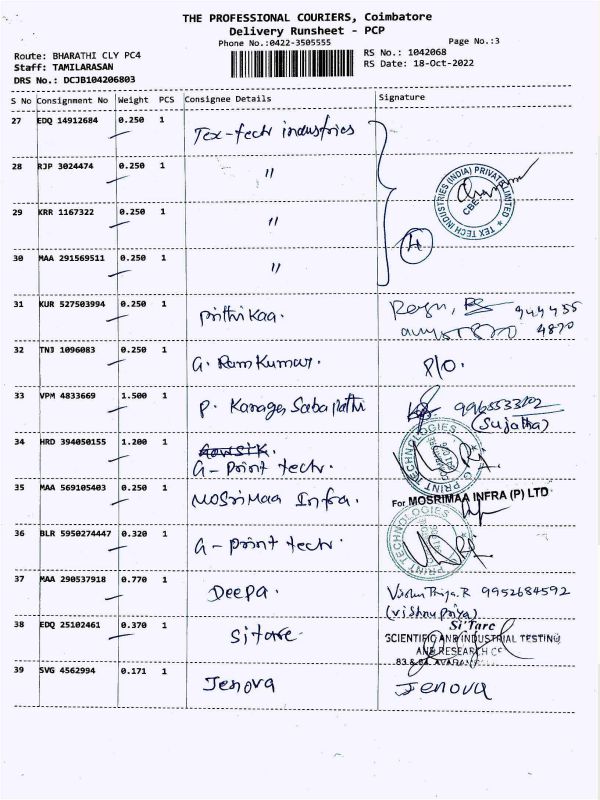 THE PROFESSIONAL COURIERS, Coimbatore
Delivery Runsheet - PCP
Phone No.:0422-3505555
Page No.:3
Route: BHARATHI CLY PC4
Staff: TAMILARASAN
DRS No.: DCJB104206803
RS No.: 1042068
RS Date: 18-Oct-2022
S No Consignment No Weight PCS Consignee Details Signature
27 EDQ 14912684 0.250 1 Tex-tech industries
28 RJP 3024474 0.250 1 〃
TEX TECH INDUSTRIES (INDIA) PRIVATE LIMITED
CBE
29 KRR 1167322 0.250 1 〃
4
30 MAA 291569511 0.250 1 〃
31 KUR 527503994 0.250 1 Prithikaa.
32 TNJ 1096083 0.250 1 G. Ram Kumar. P/O.
33 VPM 4833669 1.500 1 P. Kanaga Sabapathi
(Sujatha)
34 HRD 394050155 1.200 1
G-Print tech.
G PRINT TECHNOLOGIES
35 MAA 569105403 0.250 1 Mosrimaa Infra.
For MOSRIMAA INFRA (P) LTD
36 BLR 5950274447 0.320 1 G-Print tech.
G PRINT TECHNOLOGIES
37 MAA 290537918 0.770 1 Deepa. Vishnu Priya.R 9952684592
(vishnu priya)
38 EDQ 25102461 0.370 1 Sitarc
Si'Tarc
SCIENTIFIC AND INDUSTRIAL TESTING
AND RESEARCH
39 SVG 4562994 0.171 1 Jenova Jenova